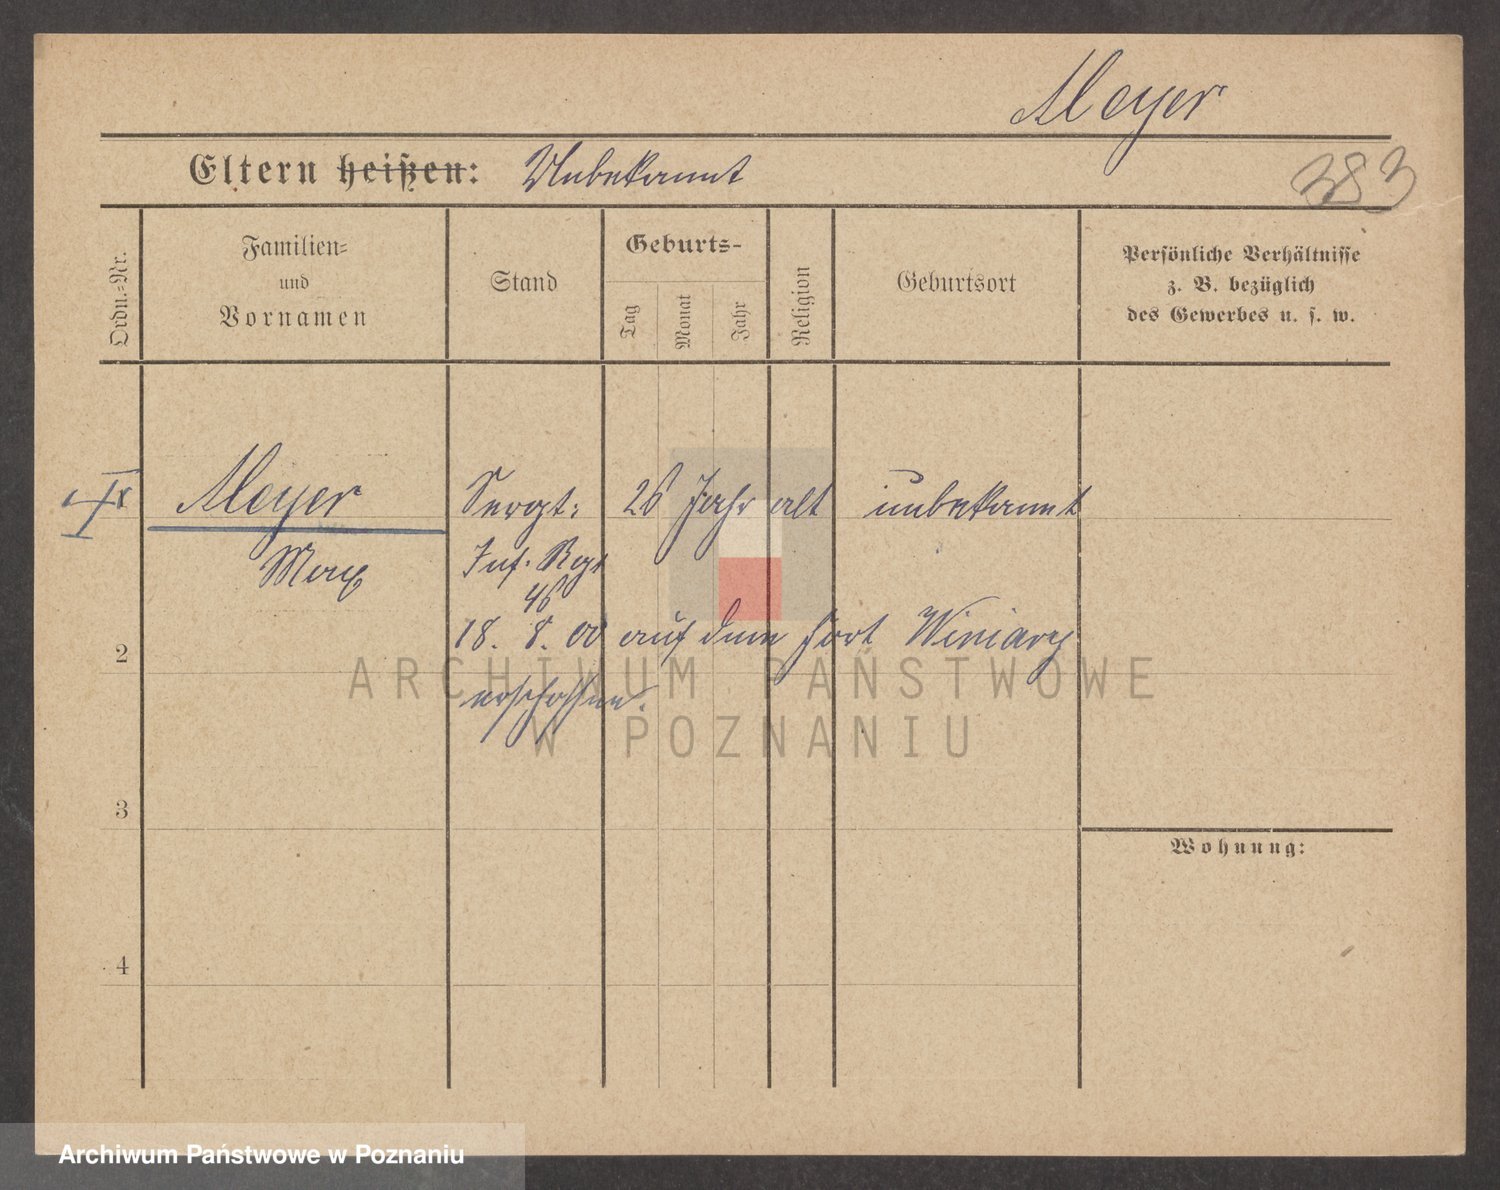 Meyer
Eltern heißen: Unbekannt
383
Ordn.-Nr.
Familien-
und
Vornamen
Stand
Geburts-
Tag
Monat
Jahr
Religion
Geburtsort
Persönliche Verhältnisse
z. B. bezüglich
des Gewerbes u. s. w.
Meyer Sergt: 26 Jahr alt unbekannt
Max Inf. Rgt
46
2 18. 8. 00 auf dem Fort Winiary
erschossen.
ARCHIWUM PAŃSTWOWE
W POZNANIU
3
Wohnung:
4
Archiwum Państwowe w Poznaniu